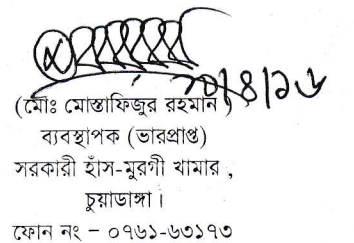 ২০/৪/১৬
(মোঃ মোস্তাফিজুর রহমান)
ব্যবস্থাপক (ভারপ্রাপ্ত)
সরকারী হাঁস-মুরগী খামার ,
চুয়াডাঙ্গা ।
ফোন নং – ০৭৬১-৬৩১৭৩